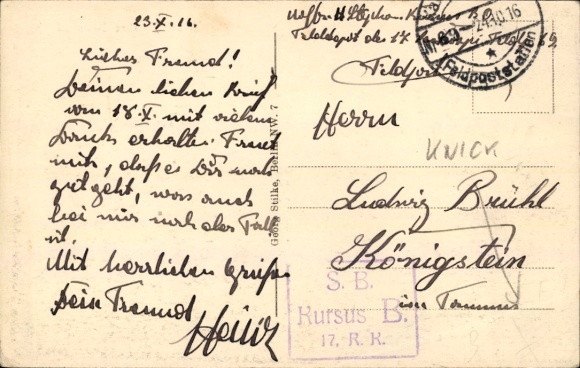 23.X.16.
Liebes Freund!
Deinen lieben Brief
vom 18.X. mit vielem
Dank erhalten. Freut
mich, daß es Dir noch
gut geht, was auch
bei mir noch der Fall
ist.
Mit herzlichen Grüßen
Dein Freund
Heinz
Georg Stilke, Berlin NW. 7
Feldpost
24.10.16
Feldpoststation
Herrn
KNICK
Ludwig Brühl
Königstein
im Taunus
S. B.
Kursus B.
17. R. K.